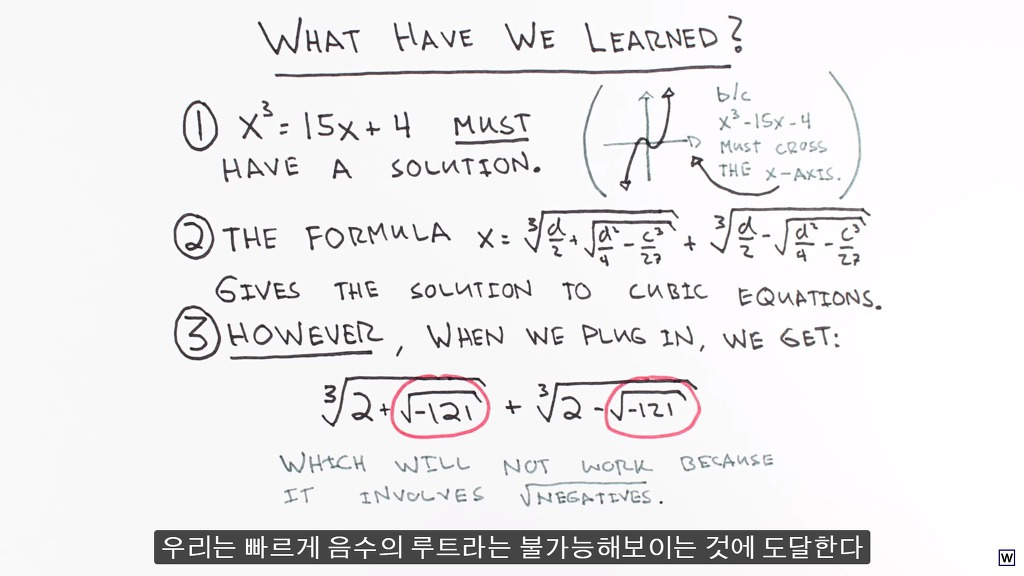 WHAT HAVE WE LEARNED?
① x³ = 15x + 4 MUST
HAVE A SOLUTION.
b/c
x³-15x-4
MUST CROSS
THE X-AXIS.
② THE FORMULA x = ∛(d/2 + √(d²/4 - c³/27)) + ∛(d/2 - √(d²/4 - c³/27))
GIVES THE SOLUTION TO CUBIC EQUATIONS.
③ HOWEVER, WHEN WE PLUG IN, WE GET:
∛(2 + √-121) + ∛(2 - √-121)
WHICH WILL NOT WORK BECAUSE
IT INVOLVES √NEGATIVES.
우리는 빠르게 음수의 루트라는 불가능해보이는 것에 도달한다
W